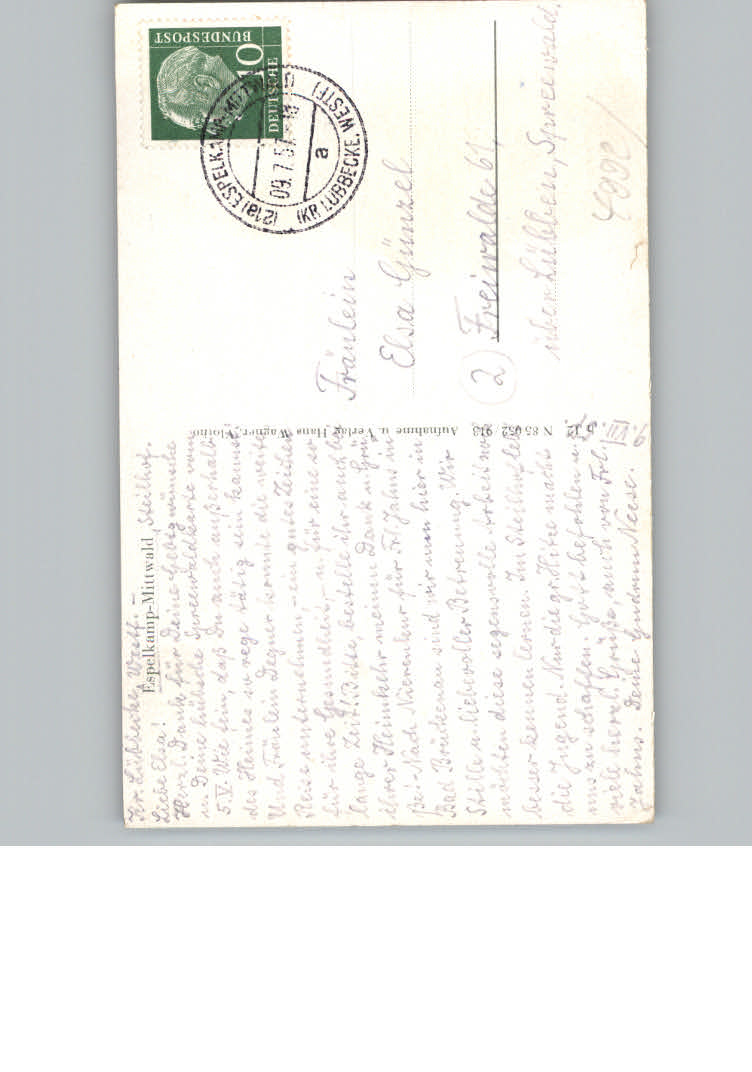 Espelkamp-Mittwald, Steilhof.
Kr. Lübbecke, Westf. –
9. VII. 57.
Liebe Elsa!
Herzl. Dank für Deine Gebtgwünsche
u. Deine hübsche Spreewaldkarte vom
5.V. Wie fein, daß Du auch außerhalb
des Heimes so rege tätig sein kannst.
Und Fräulein Degner konnte die weite
Reise unternehmen, – ein gutes Zeichen
für ihre Gesundheit, – u. für eine so
lange Zeit! Bitte, bestelle ihr auch bei
ihrer Heimkehr meinen Dank u. Grü-
ße. – Nach Nierenkur für Frl. Jahns in
Bad Brückenau sind wir nun hier in
Stille u. liebevoller Betreuung. Wir
möchten diese segensvolle Arbeit noch
besser kennen lernen. Im Steilhof lebt
die Jugend. Nur die gr. Hitze macht
uns zu schaffen. Gott befohlen u.
viele herzl. Grüße, auch von Frl.
Jahns. Deine Gudrun Neese.
N 85 052 913 Aufnahme u. Verlag Hans Wagner, Vlotho
DEUTSCHE
BUNDESPOST
10
(21a) ESPELKAMP-MITTWALD
(KR LÜBBECKE, WESTF)
09.7.57.
a
Fräulein
Elsa Günzel
(2) Freiwalde 61,
über Lübben, Spreewald.